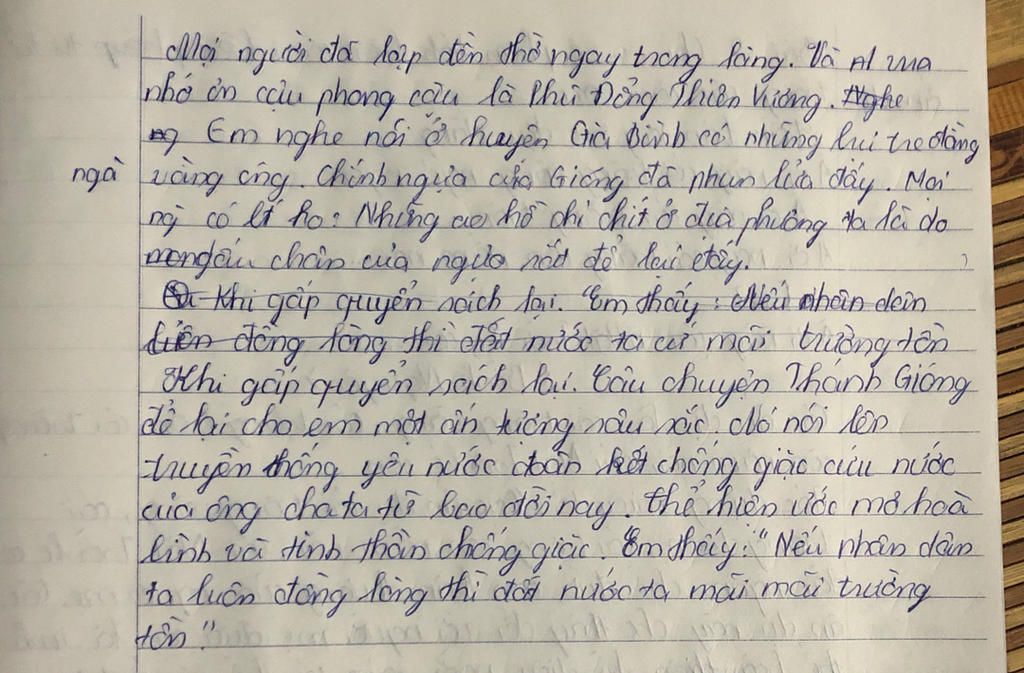 Mọi người đã lập đền thờ ngay trong làng. Và vua
nhớ ơn cậu phong cậu là Phù Đổng Thiên Vương. Nghe
ng Em nghe nói ở huyện Gia Bình có những bụi tre đằng
ngà vàng óng. Chính ngựa của Gióng đã phun lửa đấy. Mọi
có Những ao hồ chi chít ở địa phương ta là do
dấu chân của ngựa sắt để lại đấy.
Khi gấp quyển sách lại. Em thấy: Nếu nhân dân
luôn đồng lòng thì đất nước ta cứ mãi trường tồn
Khi gấp quyển sách lại. Câu chuyện Thánh Gióng
để lại cho em một ấn tượng sâu sắc. Nó nói lên
truyền thống yêu nước đoàn kết chống giặc cứu nước
của ông cha ta từ bao đời nay. thể hiện ước mơ hoà
bình và tinh thần chống giặc. Em thấy: "Nếu nhân dân
ta luôn đồng lòng thì đất nước ta mãi mãi trường
tồn."